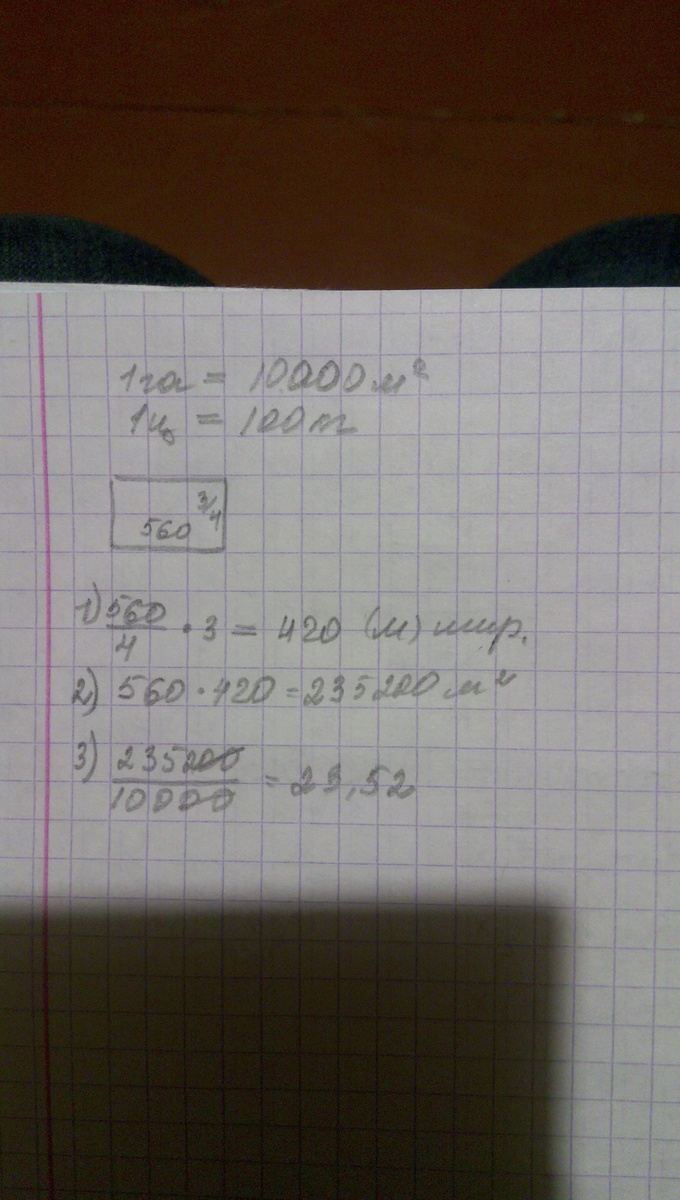 1га = 10000 м²
1ц = 100 т
3/4
560
1) 560/4 · 3 = 420 (м) шир.
2) 560 · 420 = 235200 м²
3) 235200/10000 = 23,52